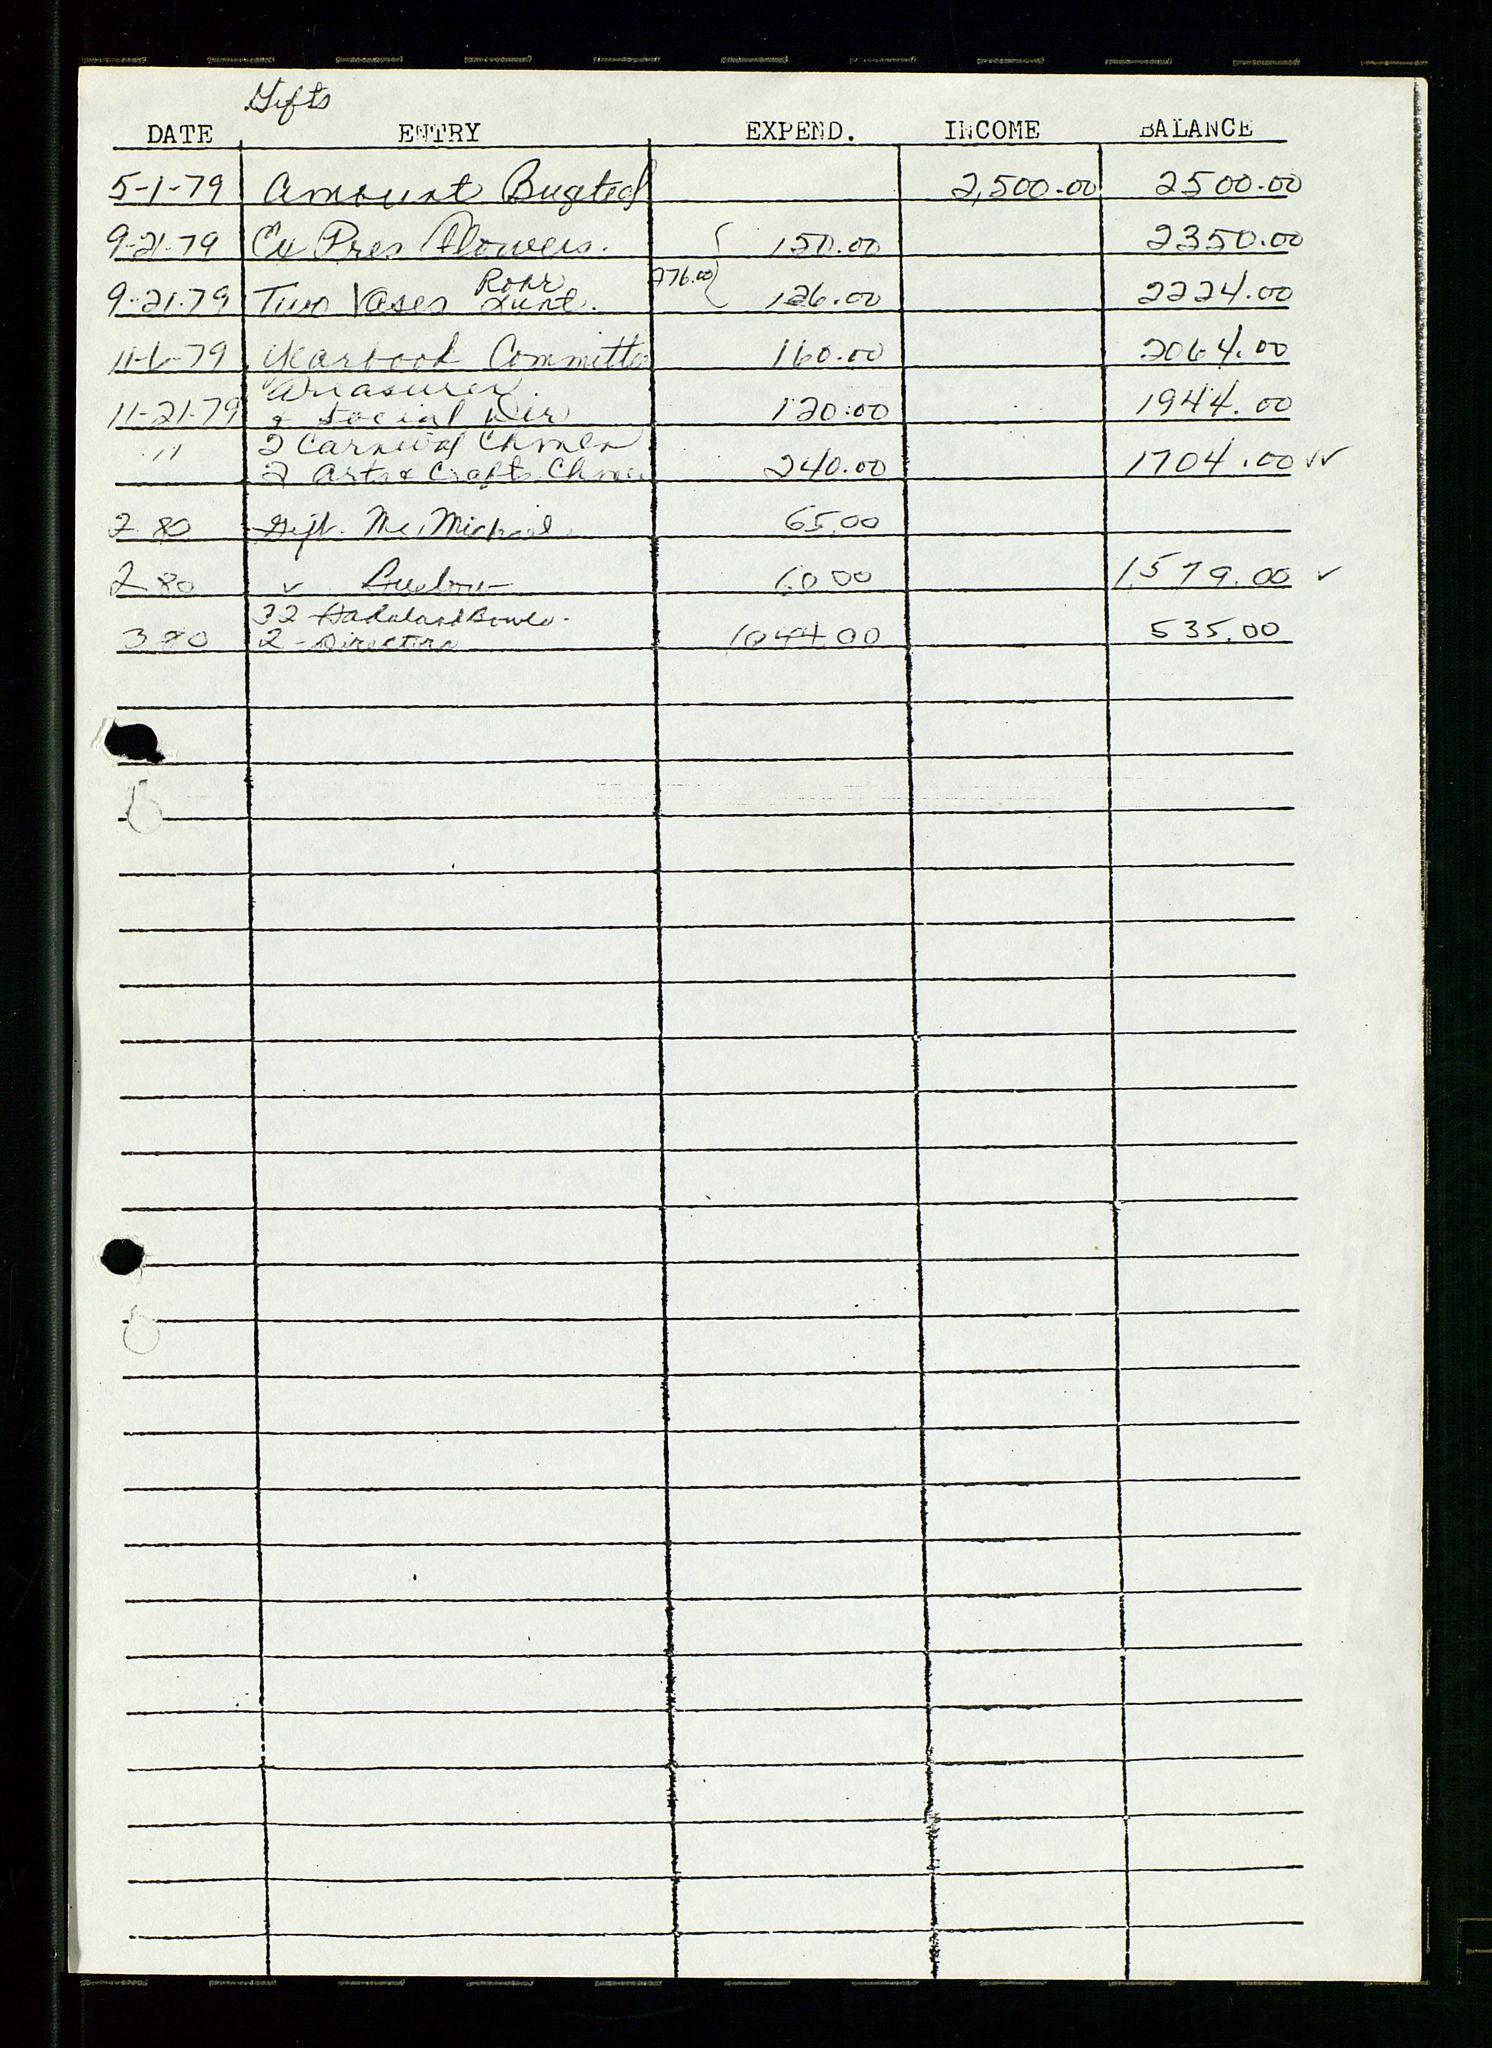 Gifts
DATE ENTRY EXPEND. INCOME BALANCE
5-1-79 Amount Bugted 2,500.00 2500.00
9-21-79 Ex Pres Flowers. 150.00 2350.00
276.00
Rohr
9-21-79 Two Vases Lunt. 126.00 2224.00
11-6-79 Yearbook Committee 160.00 2064.00
Treasurer
11-21-79 & Social Dir 120.00 1944.00
2 Carnival Chmen
" 2 Arts & Crafts Chmen 240.00 1704.00 ✓✓
2 80 Gift. Mc Michael 65.00
2 80 " 60 00 1,579.00 ✓
32 Bowls.
3 80 2 - Directors 1044.00 535.00